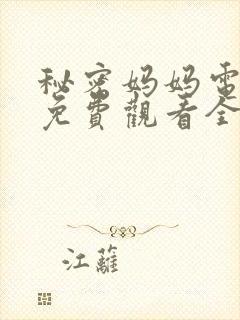 秘密妈妈电
免費觀看全
江蘺